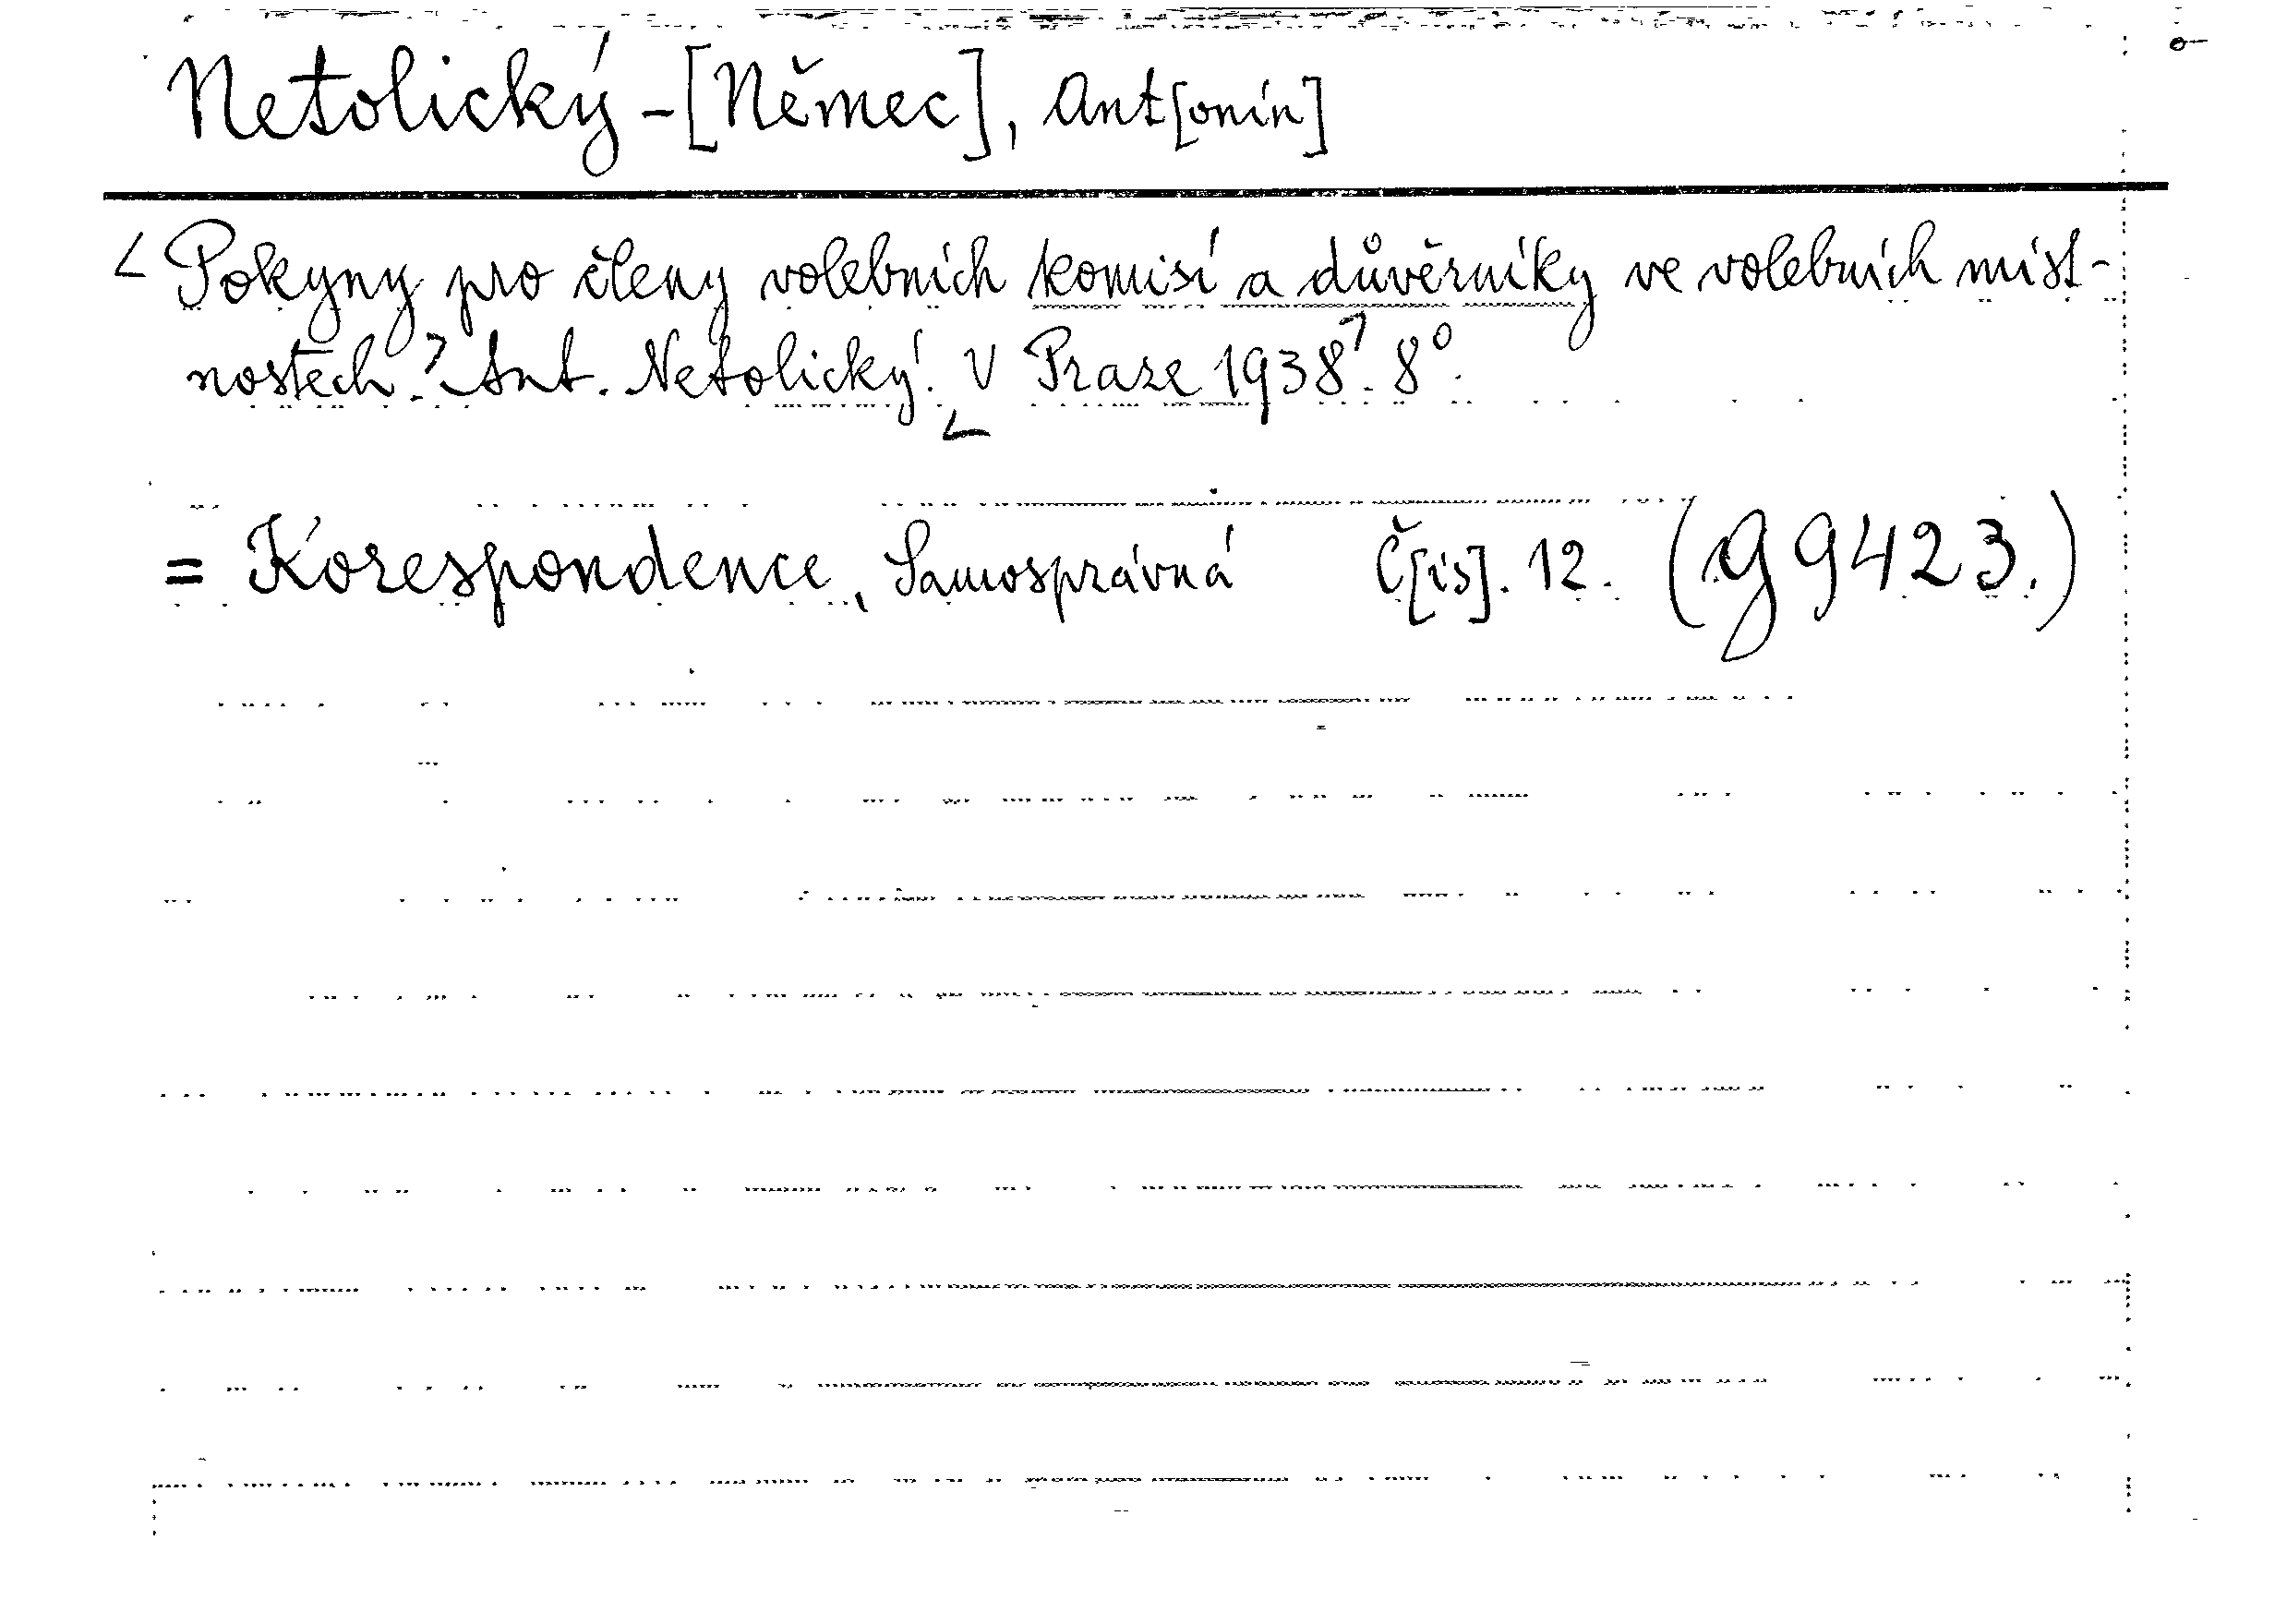 Netolický - [Němec], Ant[onín]
Pokyny pro členy volebních komisí a důvěrníky ve volebních míst-
nostech. Ant. Netolický. V Praze 1938. 8°.
= Korespondence, Samosprávná Č[ís]. 12. (g 9423.)